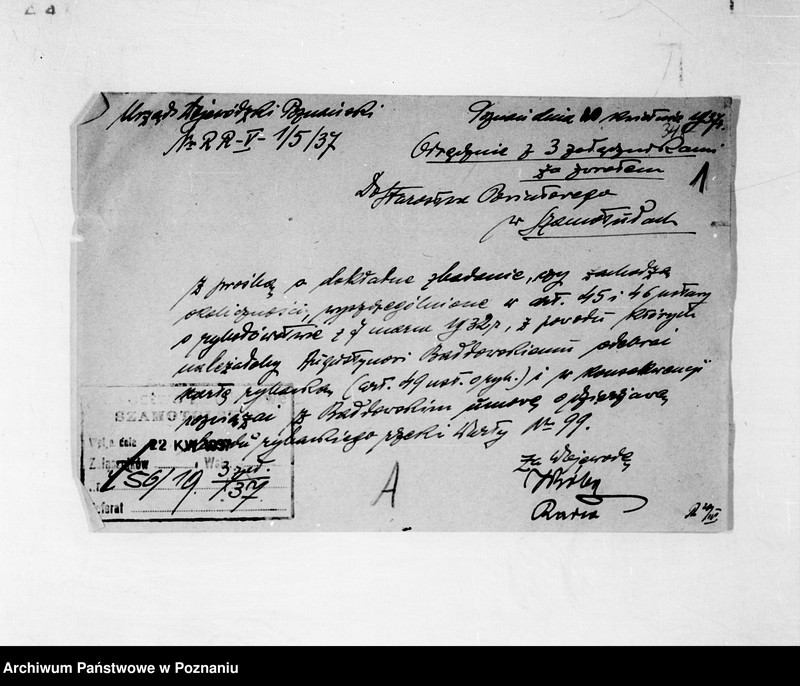 Urząd Wojewódzki Poznański
Nr RR-V-1/5/37
Poznań dnia 20 kwietnia 1937 r.
Odręcznie z 3 załącznikami
za zwrotem
1
Do Starostwa Powiatowego
w Szamotułach
z prośbą o dokładne zbadanie, czy zachodzą
okoliczności, wyszczególnione w art. 45 i 46 ustawy
o rybołówstwie z 7 marca 1932 r., z powodu których
należałoby Augustynowi Bałdowskiemu odebrać
kartę rybacką (art. 49 ust. o ryb.) i w konsekwencji
rozwiązać z Bałdowskim umowę o dzierżawę
obwodu rybackiego rzeki Warty Nr 99.
SZAMOTU
Wpł. dnia 22 KW. 1937
Załączników 3 zał.
56/19 /37.
Referat
A
Za Wojewodę
Radca
Archiwum Państwowe w Poznaniu